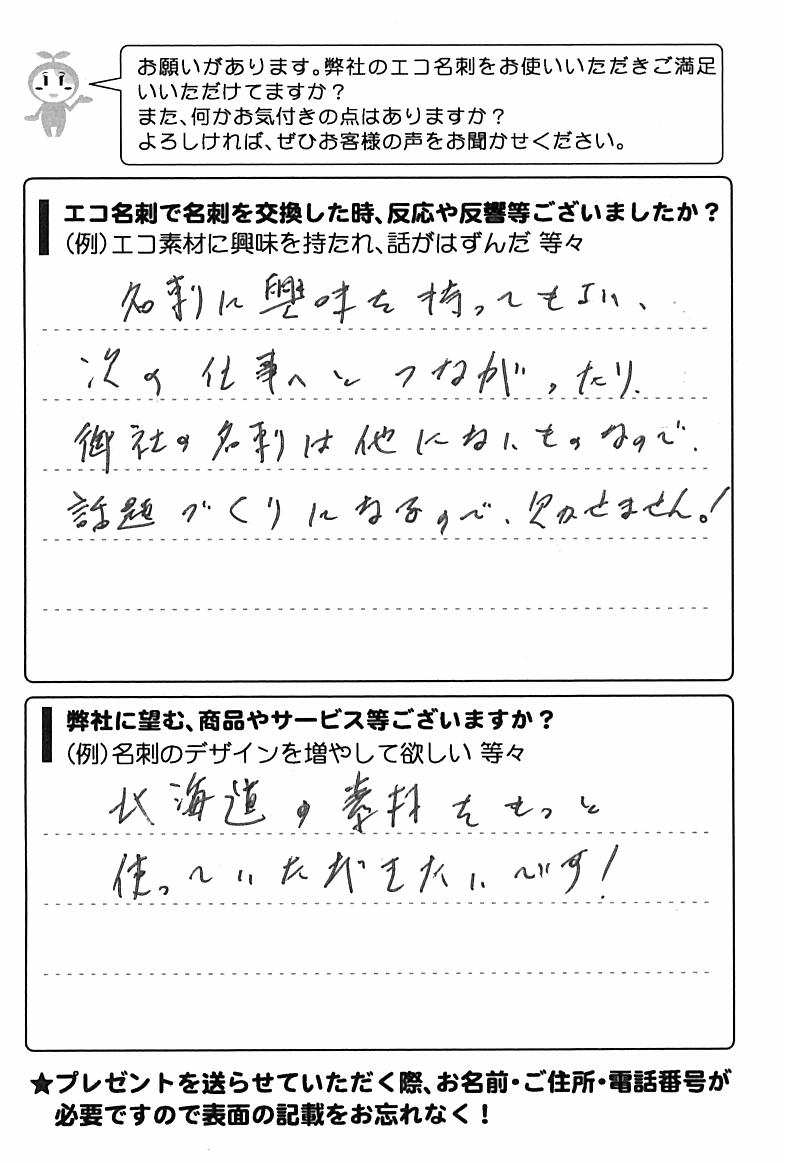 お願いがあります。弊社のエコ名刺をお使いいただきご満足
いいただけてますか？
また、何かお気付きの点はありますか？
よろしければ、ぜひお客様の声をお聞かせください。
エコ名刺で名刺を交換した時、反応や反響等ございましたか？
（例）エコ素材に興味を持たれ、話がはずんだ 等々
名刺に興味を持ってもらい、
次の仕事へとつながったり、
御社の名刺は他にないものなので、
話題づくりになるので、欠かせません。！
弊社に望む、商品やサービス等ございますか？
（例）名刺のデザインを増やして欲しい 等々
北海道の素材をもっと
使っていただきたいです！
★プレゼントを送らせていただく際、お名前・ご住所・電話番号が
必要ですので表面の記載をお忘れなく！